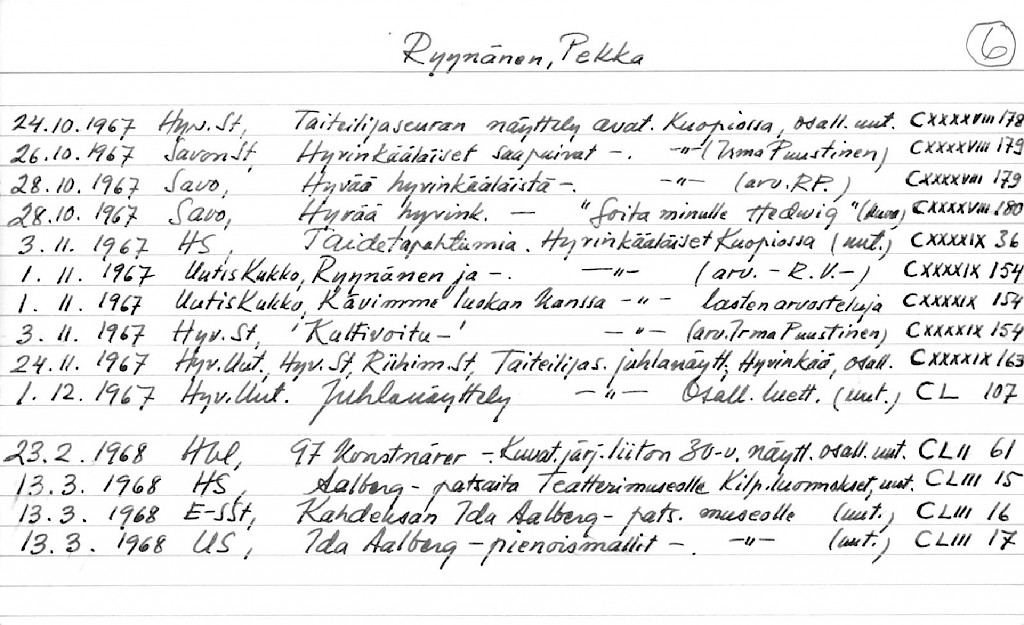 Ryynänen, Pekka 6
24.10.1967 Hyv.St, Taiteilijaseuran näyttely avat. Kuopiossa, osall. uut. CXXXXVIII 178
26.10.1967 SavonSt, Hyvinkääläiset saapuivat -. -"- (Irma Puustinen) CXXXXVIII 179
28.10.1967 Savo, Hyvää hyvinkääläistä -. -"- (arv. R.P.) CXXXXVIII 179
28.10.1967 Savo, Hyvää hyvink. — "Soita minulle Hedwig" (kuva) CXXXXVIII 180
3.11.1967 HS, Taidetapahtumia. Hyvinkääläiset Kuopiossa (uut.) CXXXXIX 36
1.11.1967 UutisKukko, Ryynänen ja -. -"- (arv. - R.V. -) CXXXXIX 154
1.11.1967 UutisKukko, Kävimme luokan kanssa -"- lasten arvosteluja CXXXXIX 154
3.11.1967 Hyv.St, 'Kultivoitu-' -"- (arv. Irma Puustinen) CXXXXIX 154
24.11.1967 Hyv.Uut, Hyv.St, Riihim.St, Taiteilijas. juhlanäytt., Hyvinkää, osall. CXXXXIX 163
1.12.1967 Hyv.Uut. Juhlanäyttely -"- Osall. luett. (uut.) CL 107
23.2.1968 Hbl, 97 konstnärer -. Kuvat.järj.liiton 30-v. näytt. osall. uut. CLII 61
13.3.1968 HS, Aalberg-patsaita Teatterimuseolle Kilp.luonnokset, uut. CLIII 15
13.3.1968 E-SSt, Kahdeksan Ida Aalberg-pats. museolle (uut.) CLIII 16
13.3.1968 US, Ida Aalberg-pienoismallit -. -"- (uut.) CLIII 17